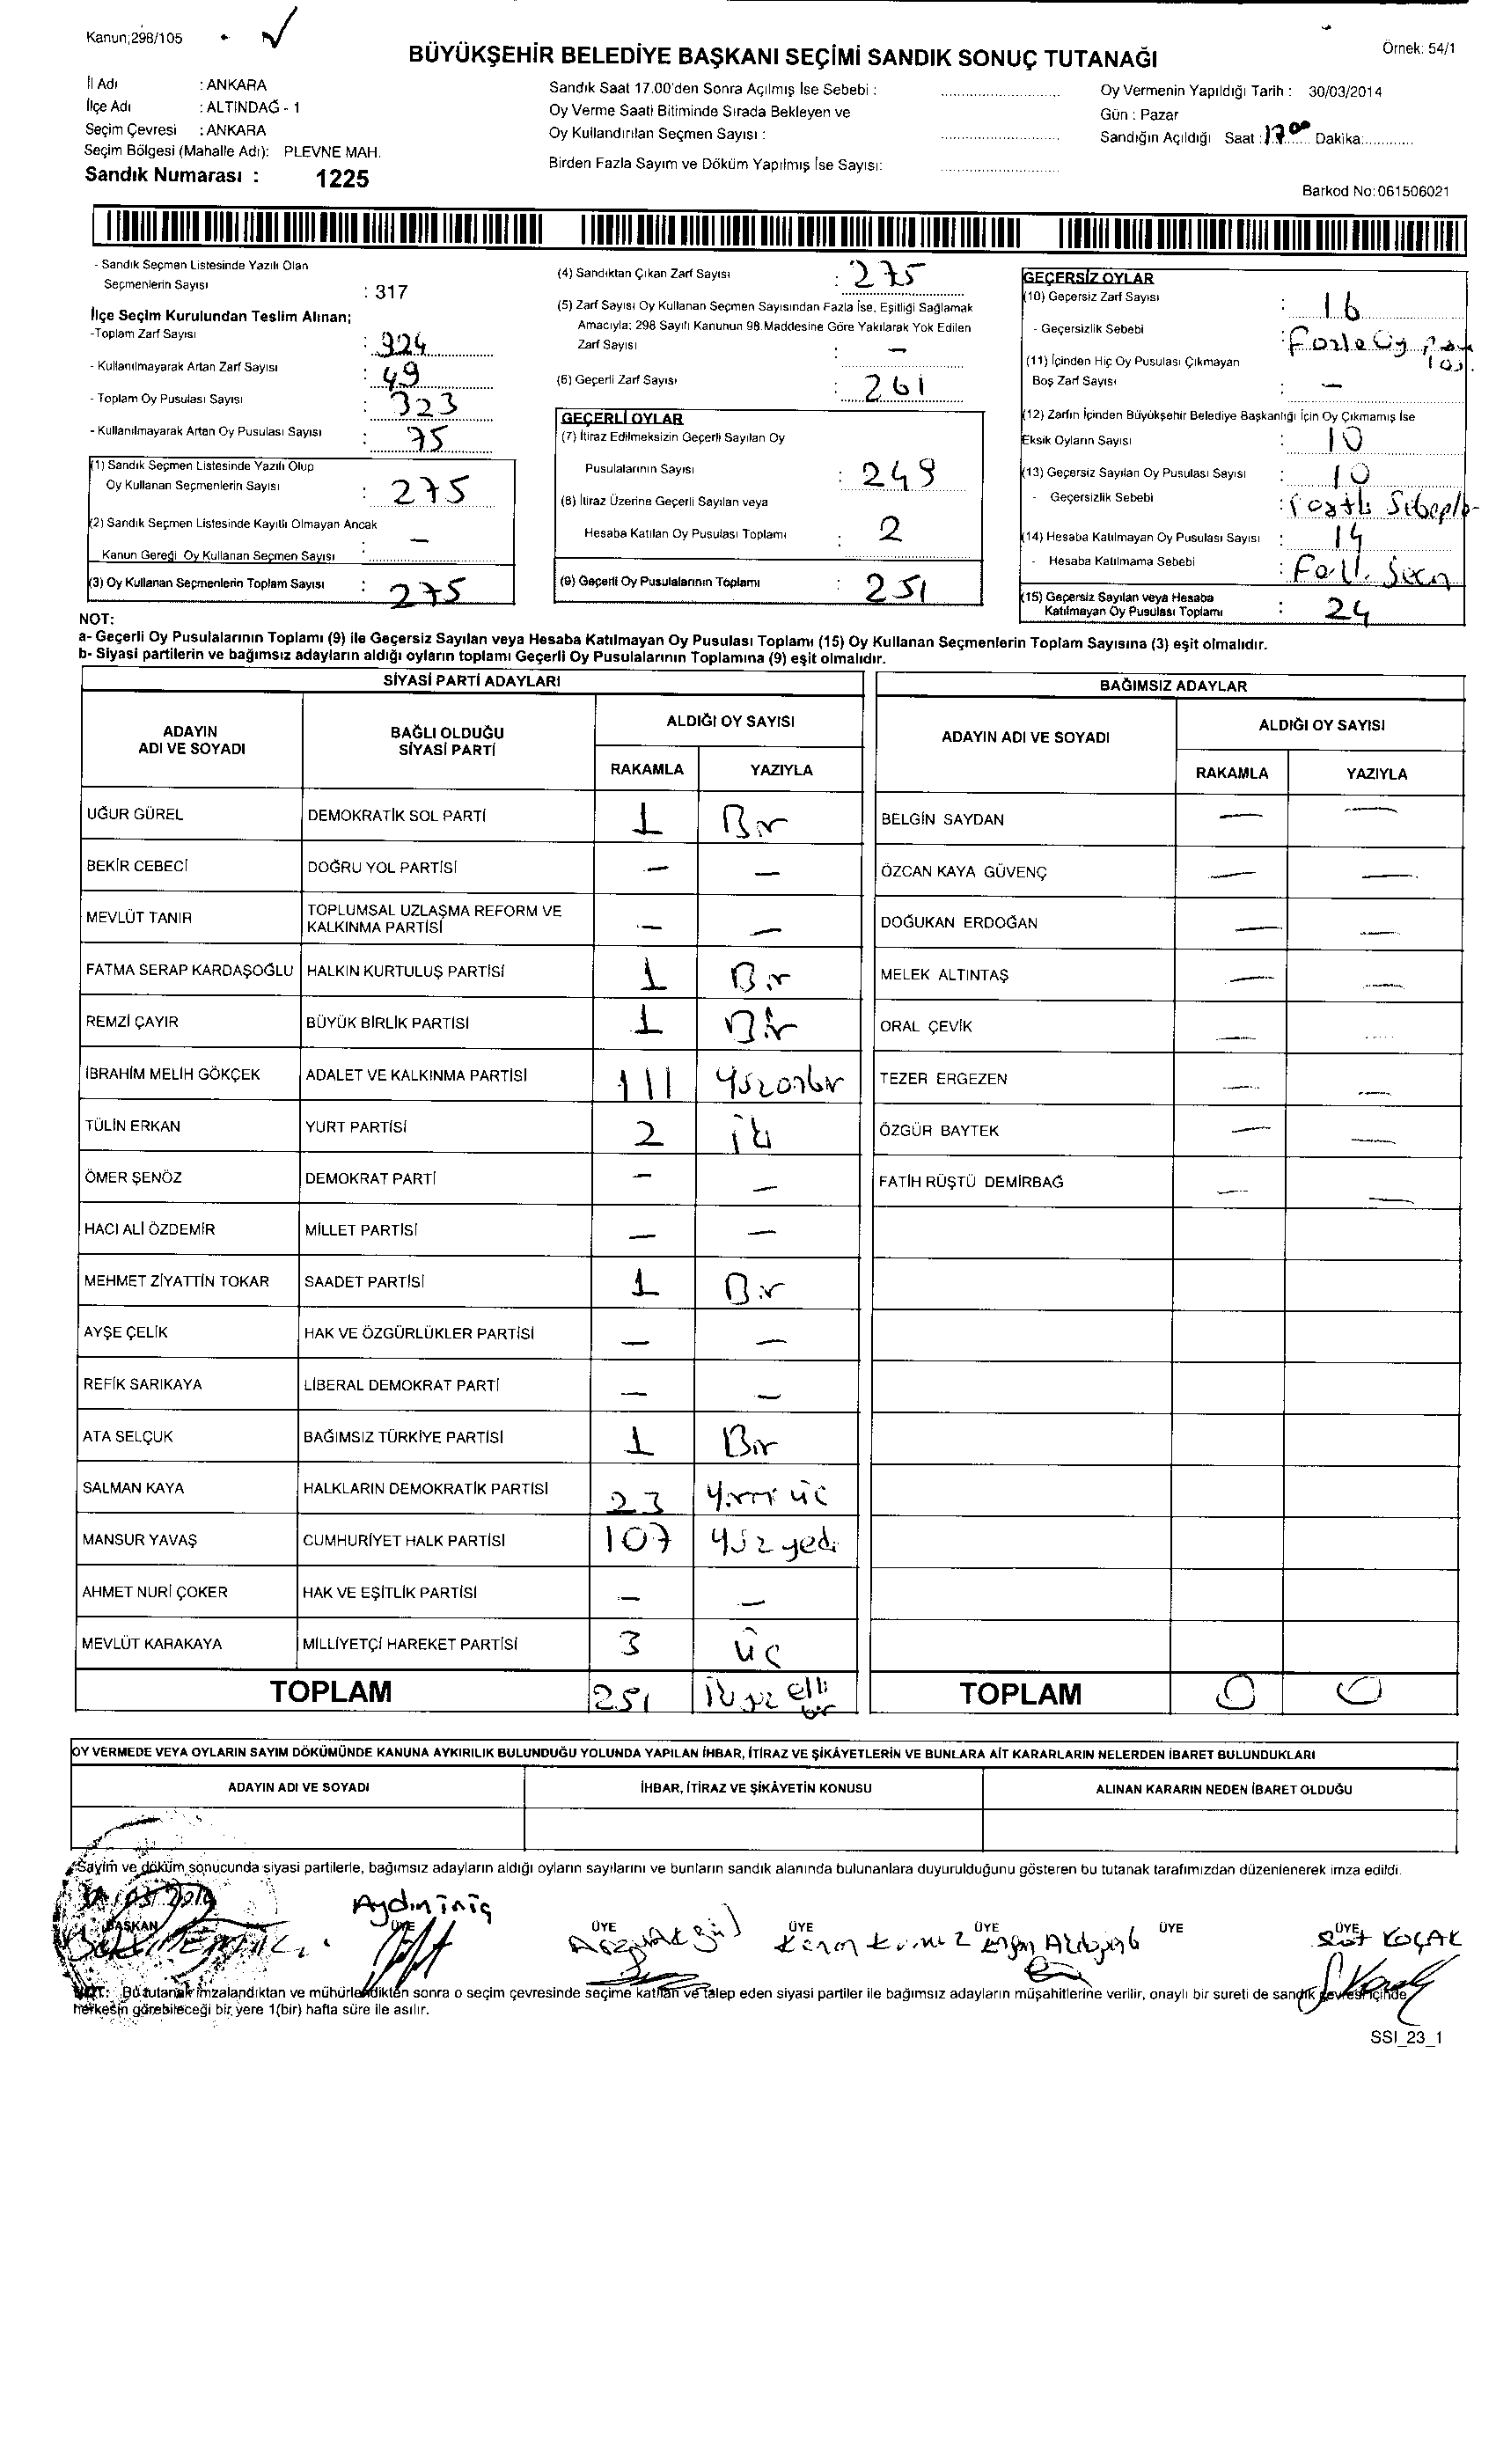 Kanun;298/105
Örnek: 54/1
BÜYÜKŞEHİR BELEDİYE BAŞKANI SEÇİMİ SANDIK SONUÇ TUTANAĞI
İl Adı : ANKARA
İlçe Adı : ALTINDAĞ - 1
Seçim Çevresi : ANKARA
Seçim Bölgesi (Mahalle Adı): PLEVNE MAH.
Sandık Numarası : 1225
Sandık Saat 17.00'den Sonra Açılmış İse Sebebi :
Oy Verme Saati Bitiminde Sırada Bekleyen ve
Oy Kullandırılan Seçmen Sayısı :
Birden Fazla Sayım ve Döküm Yapılmış İse Sayısı:
Oy Vermenin Yapıldığı Tarih : 30/03/2014
Gün : Pazar
Sandığın Açıldığı Saat : 17 00 Dakika:
Barkod No:061506021
- Sandık Seçmen Listesinde Yazılı Olan
Seçmenlerin Sayısı : 317
İlçe Seçim Kurulundan Teslim Alınan;
-Toplam Zarf Sayısı : 324
- Kullanılmayarak Artan Zarf Sayısı : 49
- Toplam Oy Pusulası Sayısı : 323
- Kullanılmayarak Artan Oy Pusulası Sayısı : 75
(1) Sandık Seçmen Listesinde Yazılı Olup
Oy Kullanan Seçmenlerin Sayısı : 275
(2) Sandık Seçmen Listesinde Kayıtlı Olmayan Ancak
Kanun Gereği Oy Kullanan Seçmen Sayısı : —
(3) Oy Kullanan Seçmenlerin Toplam Sayısı : 275
(4) Sandıktan Çıkan Zarf Sayısı : 275
(5) Zarf Sayısı Oy Kullanan Seçmen Sayısından Fazla İse, Eşitliği Sağlamak
Amacıyla; 298 Sayılı Kanunun 98.Maddesine Göre Yakılarak Yok Edilen
Zarf Sayısı : —
(6) Geçerli Zarf Sayısı : 261
GEÇERLİ OYLAR
(7) İtiraz Edilmeksizin Geçerli Sayılan Oy
Pusulalarının Sayısı : 249
(8) İtiraz Üzerine Geçerli Sayılan veya
Hesaba Katılan Oy Pusulası Toplamı : 2
(9) Geçerli Oy Pusulalarının Toplamı : 251
GEÇERSİZ OYLAR
(10) Geçersiz Zarf Sayısı : 16
- Geçersizlik Sebebi : Fazla Oy
(11) İçinden Hiç Oy Pusulası Çıkmayan
Boş Zarf Sayısı : —
(12) Zarfın İçinden Büyükşehir Belediye Başkanlığı İçin Oy Çıkmamış İse
Eksik Oyların Sayısı : 10
(13) Geçersiz Sayılan Oy Pusulası Sayısı : 10
- Geçersizlik Sebebi :
(14) Hesaba Katılmayan Oy Pusulası Sayısı : 14
- Hesaba Katılmama Sebebi :
(15) Geçersiz Sayılan veya Hesaba
Katılmayan Oy Pusulası Toplamı : 24
NOT:
a- Geçerli Oy Pusulalarının Toplamı (9) ile Geçersiz Sayılan veya Hesaba Katılmayan Oy Pusulası Toplamı (15) Oy Kullanan Seçmenlerin Toplam Sayısına (3) eşit olmalıdır.
b- Siyasi partilerin ve bağımsız adayların aldığı oyların toplamı Geçerli Oy Pusulalarının Toplamına (9) eşit olmalıdır.
SİYASİ PARTİ ADAYLARI
ADAYIN ADI VE SOYADI BAĞLI OLDUĞU SİYASİ PARTİ ALDIĞI OY SAYISI
RAKAMLA YAZIYLA
UĞUR GÜREL DEMOKRATİK SOL PARTİ 1 Bir
BEKİR CEBECİ DOĞRU YOL PARTİSİ — —
MEVLÜT TANIR TOPLUMSAL UZLAŞMA REFORM VE KALKINMA PARTİSİ — —
FATMA SERAP KARDAŞOĞLU HALKIN KURTULUŞ PARTİSİ 1 Bir
REMZİ ÇAYIR BÜYÜK BİRLİK PARTİSİ 1 Bir
İBRAHİM MELİH GÖKÇEK ADALET VE KALKINMA PARTİSİ 111 yüzonbir
TÜLİN ERKAN YURT PARTİSİ 2 iki
ÖMER ŞENÖZ DEMOKRAT PARTİ — —
HACI ALİ ÖZDEMİR MİLLET PARTİSİ — —
MEHMET ZİYATTİN TOKAR SAADET PARTİSİ 1 Bir
AYŞE ÇELİK HAK VE ÖZGÜRLÜKLER PARTİSİ — —
REFİK SARIKAYA LİBERAL DEMOKRAT PARTİ — —
ATA SELÇUK BAĞIMSIZ TÜRKİYE PARTİSİ 1 Bir
SALMAN KAYA HALKLARIN DEMOKRATİK PARTİSİ 23 yirmi üç
MANSUR YAVAŞ CUMHURİYET HALK PARTİSİ 107 yüz yedi
AHMET NURİ ÇOKER HAK VE EŞİTLİK PARTİSİ — —
MEVLÜT KARAKAYA MİLLİYETÇİ HAREKET PARTİSİ 3 üç
TOPLAM 251 ikiyüz elli bir
BAĞIMSIZ ADAYLAR
ADAYIN ADI VE SOYADI ALDIĞI OY SAYISI
RAKAMLA YAZIYLA
BELGİN SAYDAN — —
ÖZCAN KAYA GÜVENÇ — —
DOĞUKAN ERDOĞAN — —
MELEK ALTINTAŞ — —
ORAL ÇEVİK — —
TEZER ERGEZEN — —
ÖZGÜR BAYTEK — —
FATİH RÜŞTÜ DEMİRBAĞ — —
TOPLAM 0 0
OY VERMEDE VEYA OYLARIN SAYIM DÖKÜMÜNDE KANUNA AYKIRILIK BULUNDUĞU YOLUNDA YAPILAN İHBAR, İTİRAZ VE ŞİKÂYETLERİN VE BUNLARA AİT KARARLARIN NELERDEN İBARET BULUNDUKLARI
ADAYIN ADI VE SOYADI İHBAR, İTİRAZ VE ŞİKÂYETİN KONUSU ALINAN KARARIN NEDEN İBARET OLDUĞU
Sayım ve döküm sonucunda siyasi partilerle, bağımsız adayların aldığı oyların sayılarını ve bunların sandık alanında bulunanlara duyurulduğunu gösteren bu tutanak tarafımızdan düzenlenerek imza edildi.
BAŞKAN ÜYE ÜYE ÜYE ÜYE ÜYE ÜYE
KOÇAK
NOT: Bu tutanak imzalandıktan ve mühürlendikten sonra o seçim çevresinde seçime katılan ve talep eden siyasi partiler ile bağımsız adayların müşahitlerine verilir, onaylı bir sureti de sandık çevresi içinde
herkesin görebileceği bir yere 1(bir) hafta süre ile asılır.
SSI_23_1